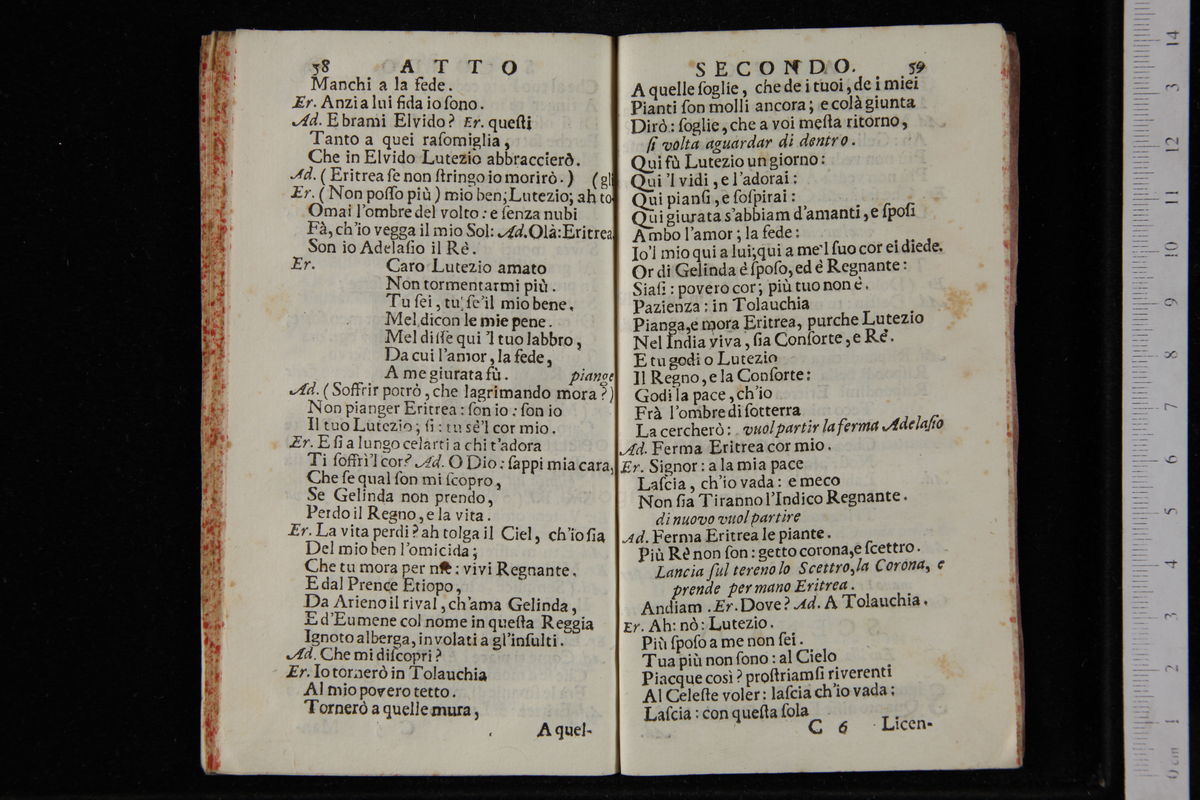 58 ATTO
Manchi a la fede.
Er. Anzi a lui fida io ſono.
Ad. E brami Elvido? Er. queſti
Tanto a quei raſomiglia,
Che in Elvido Lutezio abbraccierò.
Ad. (Eritrea ſe non ſtringo io morirò.) (gli
Er. (Non poſſo più) mio ben; Lutezio; ah to-
Omai l'ombre del volto: e ſenza nubi
Fà, ch'io vegga il mio Sol: Ad. Olà: Eritrea.
Son io Adelaſio il Rè.
Er. Caro Lutezio amato
Non tormentarmi più.
Tu ſei, tu ſe'il mio bene.
Mel dicon le mie pene.
Mel diſſe qui 'l tuo labbro,
Da cui l'amor, la fede,
A me giurata fù. piange
Ad. (Soffrir potrò, che lagrimando mora?)
Non pianger Eritrea: ſon io: ſon io
Il tuo Lutezio; ſi: tu sè'l cor mio.
Er. E ſi a lungo celarti a chi t'adora
Ti ſoffrì'l cor? Ad. O Dio: ſappi mia cara,
Che ſe qual ſon mi ſcopro,
Se Gelinda non prendo,
Perdo il Regno, e la vita.
Er. La vita perdi? ah tolga il Ciel, ch'io ſia
Del mio ben l'omicida;
Che tu mora per me: vivi Regnante.
E dal Prence Etiopo,
Da Arieno il rival, ch'ama Gelinda,
E d'Eumene col nome in queſta Reggia
Ignoto alberga, involati a gl'inſulti.
Ad. Che mi diſcopri?
Er. Io tornerò in Tolauchia
Al mio povero tetto.
Tornerò a quelle mura,
A quel-
SECONDO. 59
A quelle ſoglie, che de i tuoi, de i miei
Pianti ſon molli ancora; e colà giunta
Dirò: ſoglie, che a voi meſta ritorno,
ſi volta aguardar di dentro.
Qui fù Lutezio un giorno:
Qui 'l vidi, e l'adorai:
Qui pianſi, e ſoſpirai:
Qui giurata s'abbiam d'amanti, e ſpoſi
Ambo l'amor; la fede:
Io'l mio qui a lui; qui a me'l ſuo cor ei diede.
Or di Gelinda è ſpoſo, ed è Regnante:
Siaſi: povero cor; più tuo non è.
Pazienza: in Tolauchia
Pianga, e mora Eritrea, purche Lutezio
Nel India viva, ſia Conſorte, e Rè.
E tu godi o Lutezio
Il Regno, e la Conſorte:
Godi la pace, ch'io
Frà l'ombre di ſotterra
La cercherò: vuol partir la ferma Adelaſio
Ad. Ferma Eritrea cor mio.
Er. Signor: a la mia pace
Laſcia, ch'io vada: e meco
Non ſia Tiranno l'Indico Regnante.
di nuovo vuol partire
Ad. Ferma Eritrea le piante.
Più Rè non ſon: getto corona, e ſcettro.
Lancia ſul tereno lo Scettro, la Corona, e
prende per mano Eritrea.
Andiam. Er. Dove? Ad. A Tolauchia.
Er. Ah: nò: Lutezio.
Più ſpoſo a me non ſei.
Tua più non ſono: al Cielo
Piacque così? proſtriamſi riverenti
Al Celeſte voler: laſcia ch'io vada:
Laſcia: con queſta ſola
C 6 Licen-
14
13
12
11
10
9
8
7
6
5
4
3
2
1
0 cm